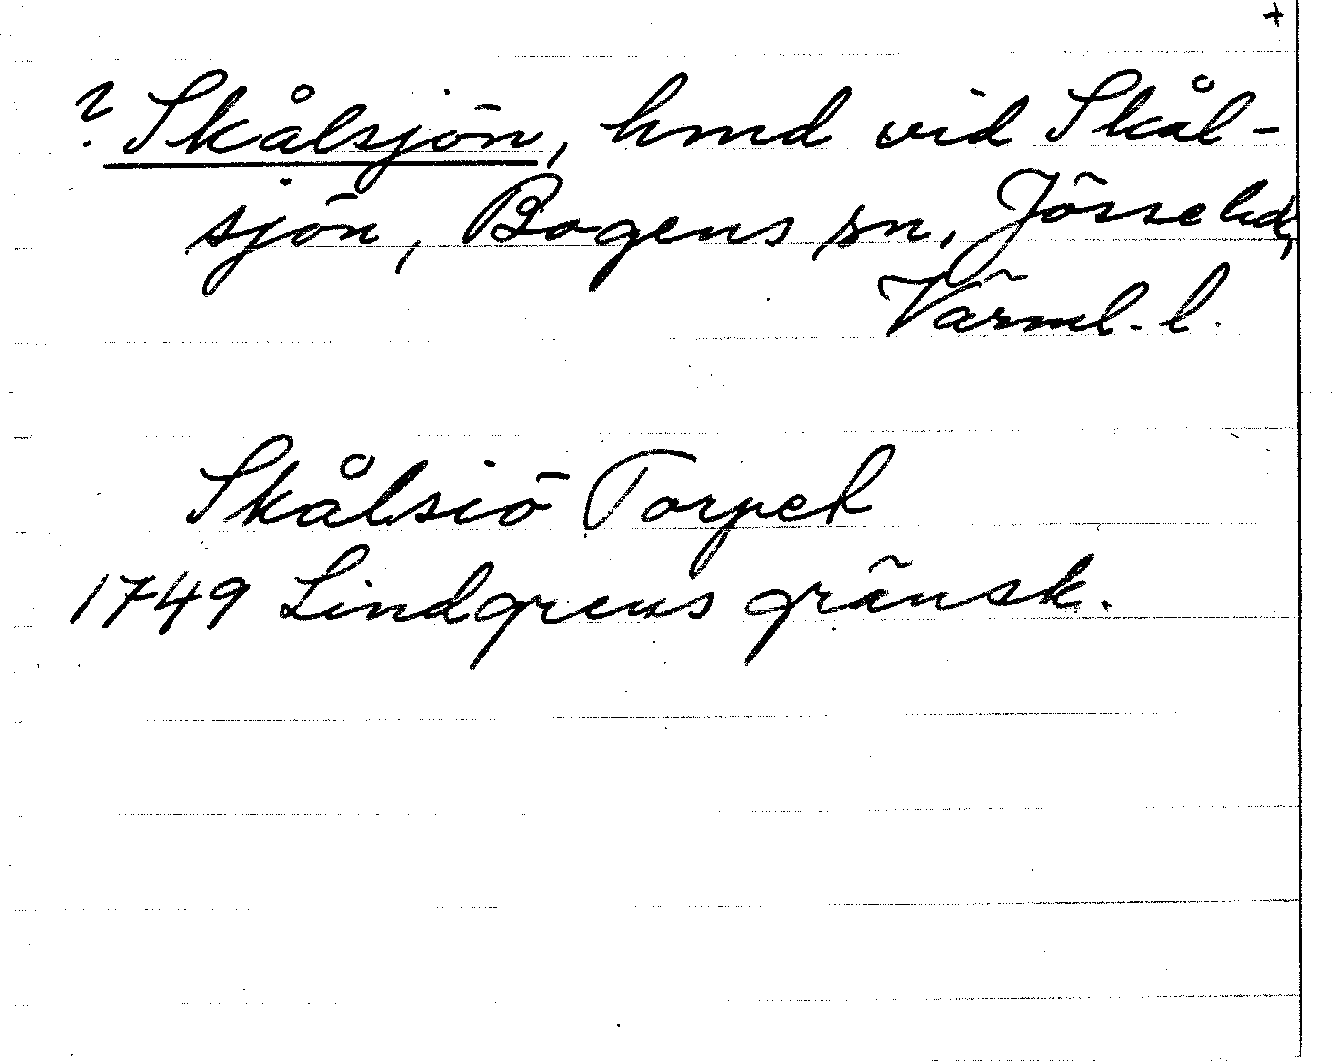 +
? Skålsjön, hmd vid Skål-
sjön, Bogens sn, Jösse hd,
Värml. l.
Skålsiö Torpet
1749 Lindgrens gränsk.